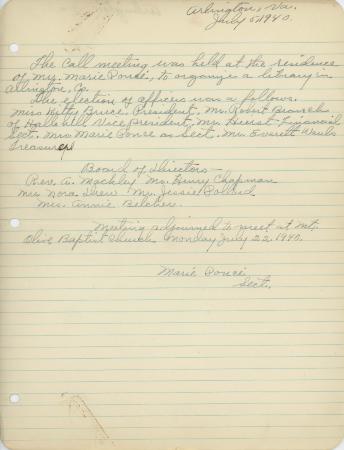 Arlington, Va.
July 5 1940.
The Call meeting was held at the residence
of Mrs. Marie Ponce, to organize a library in
Arlington, Co.
The election of officers was a follows.
Miss Hetty Bruce, President, Mr. Robert
of Halls Hill Vice President, Mr. Hurst Financial
Sect. Mrs Marie Ponce as Sect. Mr. Everett
Treasurer
Board of Directors —
Rev. A. Mackley Mr. Henry Chapman
Mrs Nora Drew Mr. Jessie
Mrs. Annie Belcher.
Meeting adjourned to meet at Mt.
Olive Baptist Church Monday July 22, 1940.
Marie Ponce
Sect.